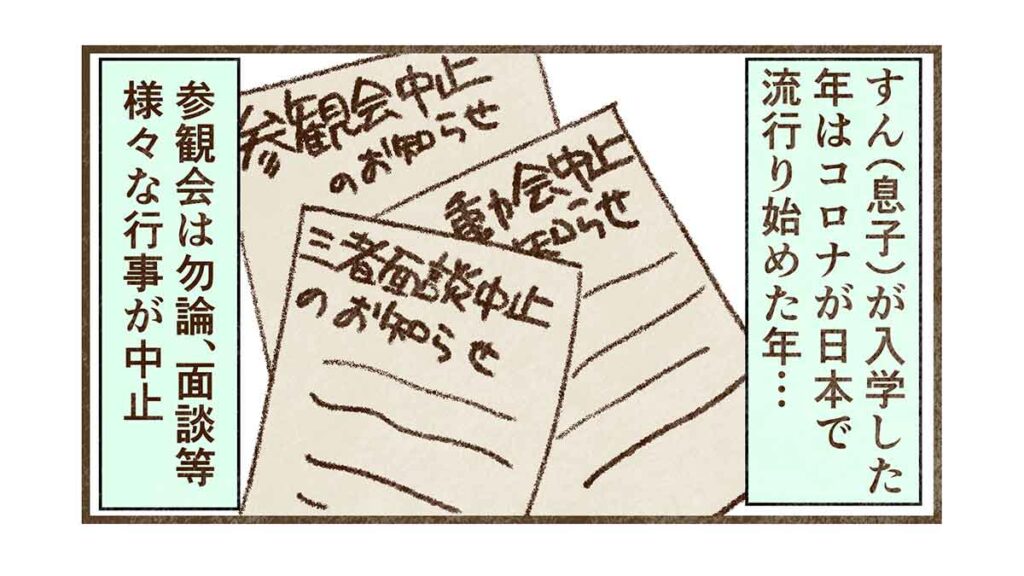 すん(息子)が入学した
年はコロナが日本で
流行り始めた年…
参観会中止
のお知らせ
動会中止
知らせ
三者面談中止
のお知らせ
参観会は勿論、面談等
様々な行事が中止